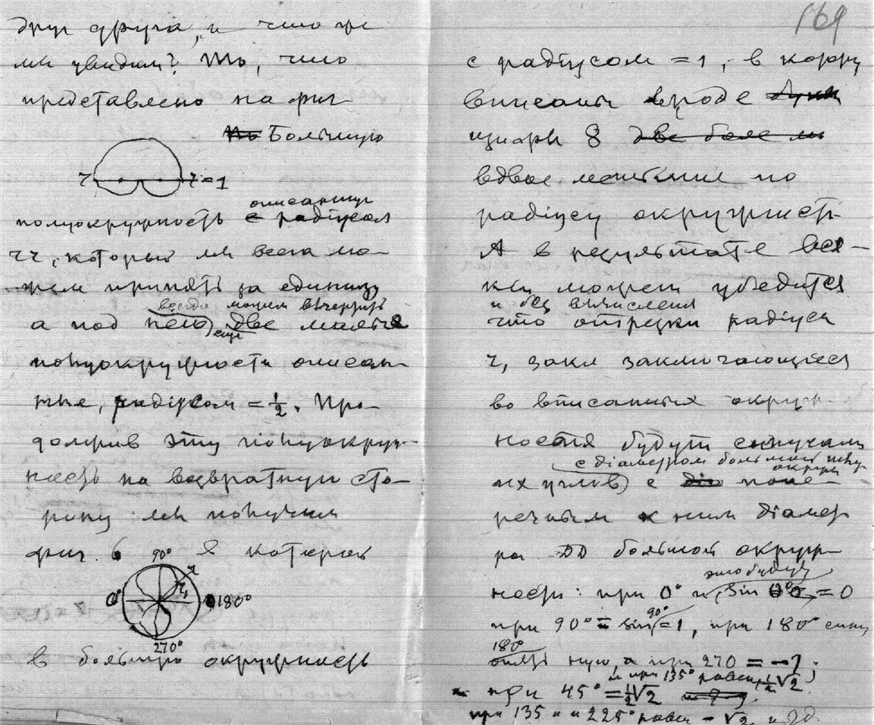 друг друга, и что же
мы увидим? То, что
представлено на фиг
Большую
r r = 1
описанную
полуокружность с радіусом
rr, который мы всегда мо-
жем принять за единицу
всегда можем вычертить
а под нею еще две малые
полуокружности описан-
ные, радіусом = ½. Про-
должив эту полуокруж-
ность на возвратную сто-
рону мы получим
фиг. 6 в которой
90°
0° r r₁ 180°
270°
в большую окружность
169
с радіусом = 1, в корру
вписаны вроде
цифры 8 две боле м
вдвое меньшие по
радіусу окружности
А в результате вся-
кий может убедится
и без вычисления
что отрезки радіуса
r, закл заключающіеся
во вписанных окруж-
ностях будут
с діаметром большой
окруж
их углов) с попе-
речным к ним діамет
ра DD большой окруж
ности: при 0° и sin 0° = 0
это будет
при 90° = sin 90° = 1, при 180° синус
180°
опять нуль, а при 270 = -1;
и при 135° равен ½√2
при 45° = ½√2
при 135 и 225° равен - √2 и т.д.